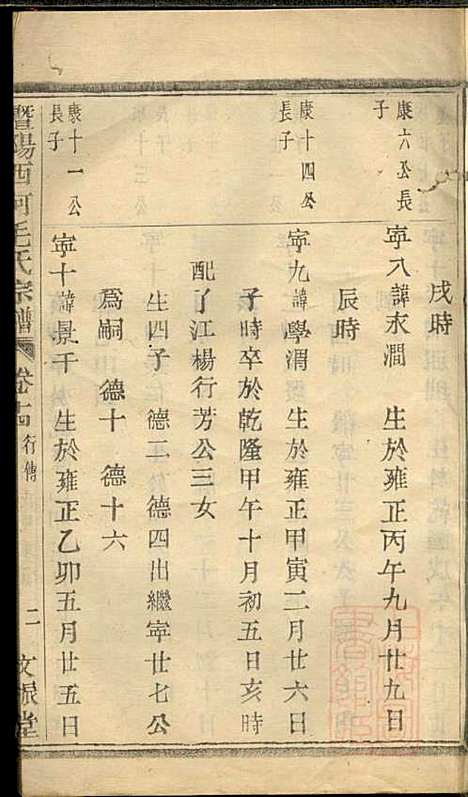 戌時
康六公長
子
寧八諱永澗 生於雍正丙午九月廿九日
辰時
康十四公
長子
寧九諱學渭 生於雍正甲寅二月廿六日
子時卒於乾隆甲午十月初五日亥時
配了江楊行芳公三女
生四子 德二 德四出繼寧廿七公
爲嗣 德十 德十六
康十一公
長子
寧十諱景千 生於雍正乙卯五月廿五日
暨陽西河毛氏宗譜 卷十四 行傳 二 文振堂